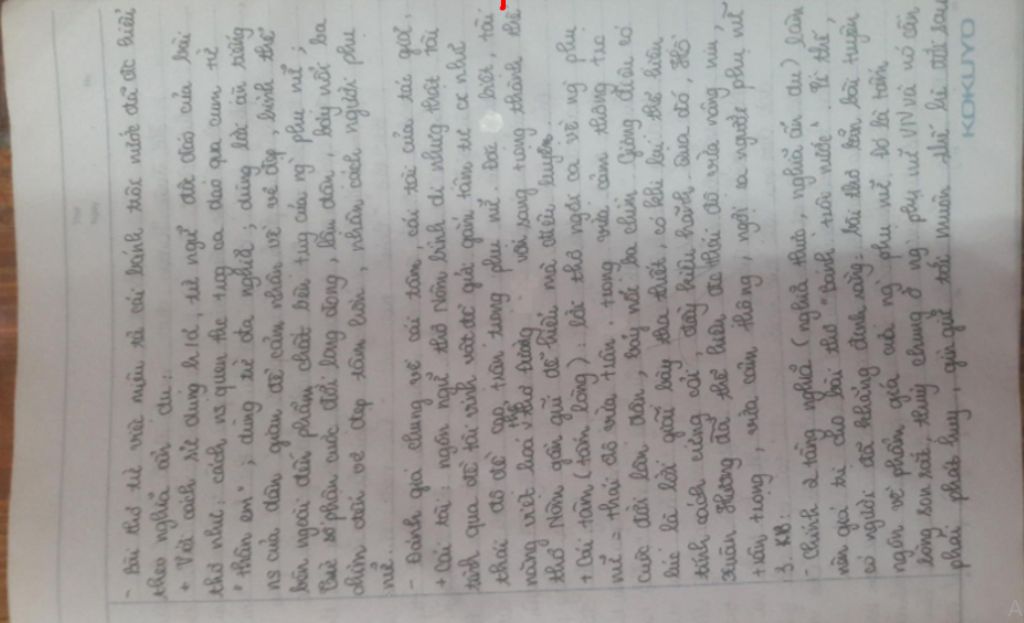 - Bài thơ từ việc miêu tả cái bánh trôi nước để đc hiểu
theo nghĩa ẩn dụ:
+ Với cách sử dụng h/ả, từ ngữ độc đáo của bài
thơ như: cách ns quen thc trg ca dao qua cụm từ
"thân em"; dùng từ đa nghĩa; dùng lời ăn tiếng
ns của dân gian để cảm nhận về vẻ đẹp, hình thể
bên ngoài đến phẩm chất bên trg của ng phụ nữ;
từ số phận cuộc đời long đong, lận đận, bảy nổi ba
chìm đến vẻ đẹp tâm hồn, nhân cách người phụ
nữ.
- Đánh giá chung về cái tâm, cái tài của tác giả.
+ Cái tài: ngôn ngữ thơ Nôm bình dị nhưng thật tài
tình qua đề tài vịnh vật để gửi gắm tâm tư cx như
thái độ đề cao, trân trọng phụ nữ. Tác biệt, tài
năng việt hoá thể thơ Đường với sang trọng thành thể
thơ Nôm gần gũi dễ hiểu mà điêu luyện.
+ Cái tâm (tấm lòng): lời thơ ngợi ca về ng phụ
nữ = thái độ vừa trân trọng vừa cảm thông trc
cuộc đời lận đận, bảy nổi ba chìm. Giọng điệu có
lúc là lời giãi bày tha thiết, có khi lại thể hiện
tính cách cứng cỏi, đầy kiêu hãnh. Qua đó, Hồ
Xuân Hương đã thể hiện đc thái độ vừa nâng niu,
trân trọng, vừa cảm thông, ngợi ca người phụ nữ
3. KB:
- Chính 2 tầng nghĩa (nghĩa thực, nghĩa ẩn dụ) làm
nên giá trị cho bài thơ "Bánh trôi nước". Vì thế,
có người đã khẳng định rằng: bài thơ là bản tuyên
ngôn về phẩm giá của ng phụ nữ bởi lẽ tấm
lòng son sắt, thuỷ chung ở ng phụ nữ VN và nó cần
phải phát huy, gìn giữ tới muôn thế hệ đời sau
KOKUYO